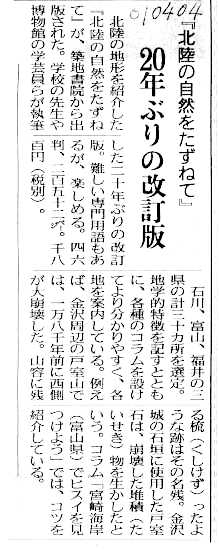 010404
『北陸の自然をたずねて』
20年ぶりの改訂版
北陸の地形を紹介した
『北陸の自然をたずね
て』が、築地書院から出
版された。学校の先生や
博物館の学芸員らが執筆
した二十年ぶりの改訂
版。難しい専門用語もあ
るが、楽しめる。四六
判、二百五十二㌻。千八
百円（税別）。
石川、富山、福井の三
県の計三十カ所を選定。
地学的特徴を記すととも
に、各種のコラムを設け
てより分かりやすく、各
地を案内している。例え
ば、金沢周辺の戸室山で
は、一万八千年前に西側
が大崩壊した。山容に残
る梳（くしけず）ったよ
うな跡はその名残。金沢
城の石垣に使用した戸室
石は、崩壊した堆積（た
いせき）物を生かしたと
いう。コラム「宮崎海岸
（富山県）でヒスイを見
つけよう」では、コツを
紹介している。